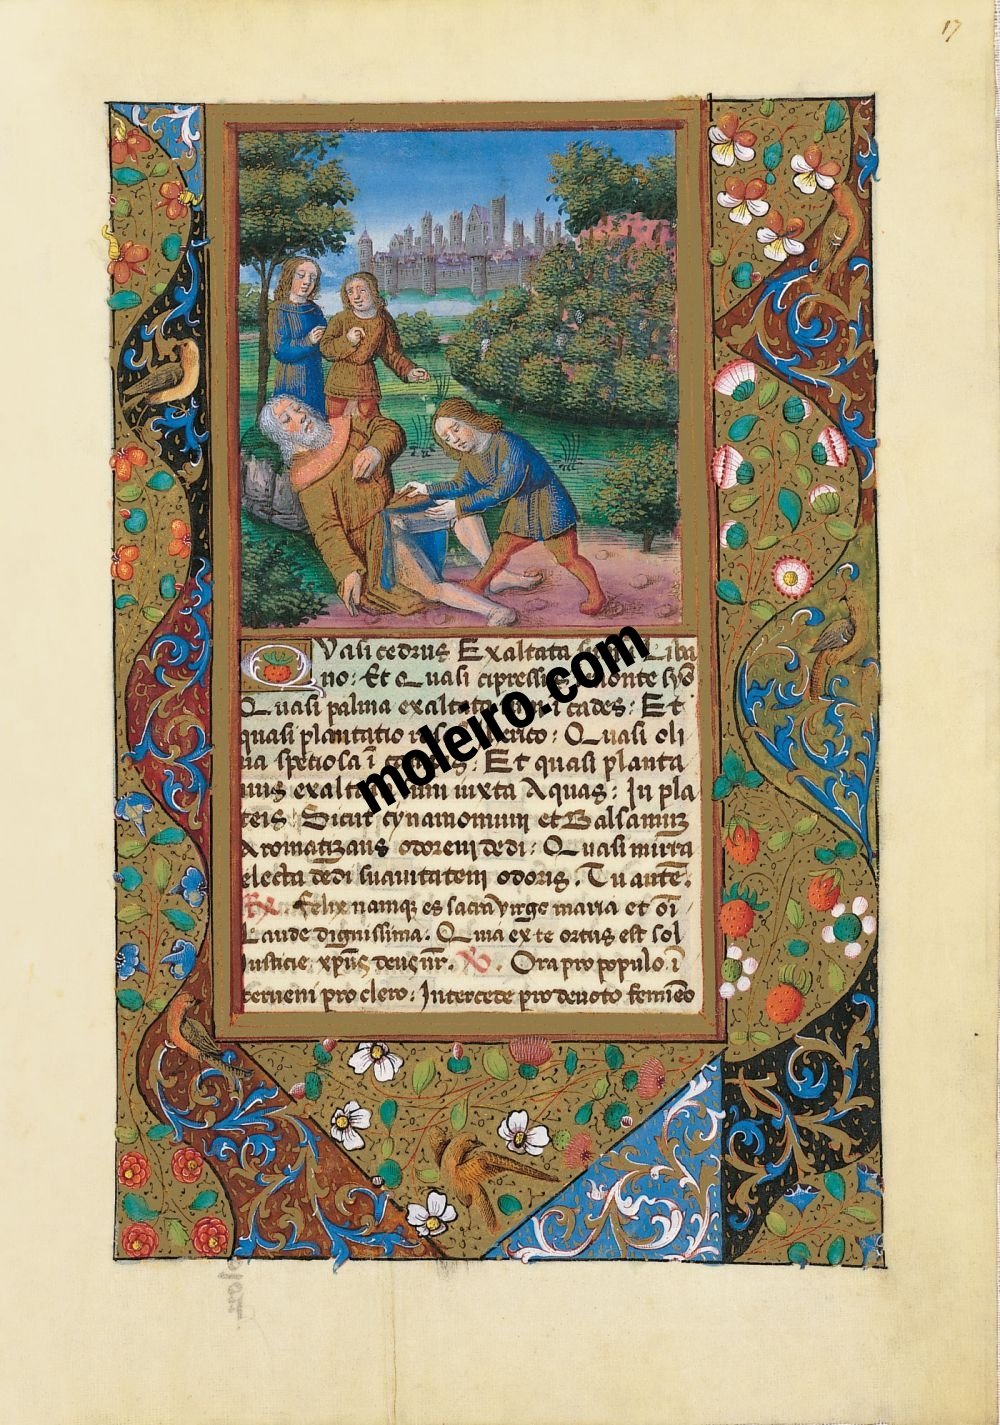 17
Quasi cedrus Exaltata Liba
no: Et Quasi cipressus monte syō
Quasi palma exaltata sum i cades: Et
quasi plantatio Quasi oli
ua speciosa ī Et quasi planta
nus exaltata sum iuxta Aquas: In pla
teis: Sicut cynamomum et Balsamuz
Aromatizans odorem dedi: Quasi mirra
electa dedi suauitatem odoris. Tu autē.
Rx. Felix namqz es sacra virgo maria et oī
Laude dignissima. Quia ex te ortus est sol
Iusticie xp̄us deus nr̄. V. Ora pro populo. ī
terueni pro clero: Intercede pro deuoto femineo
moleiro.com